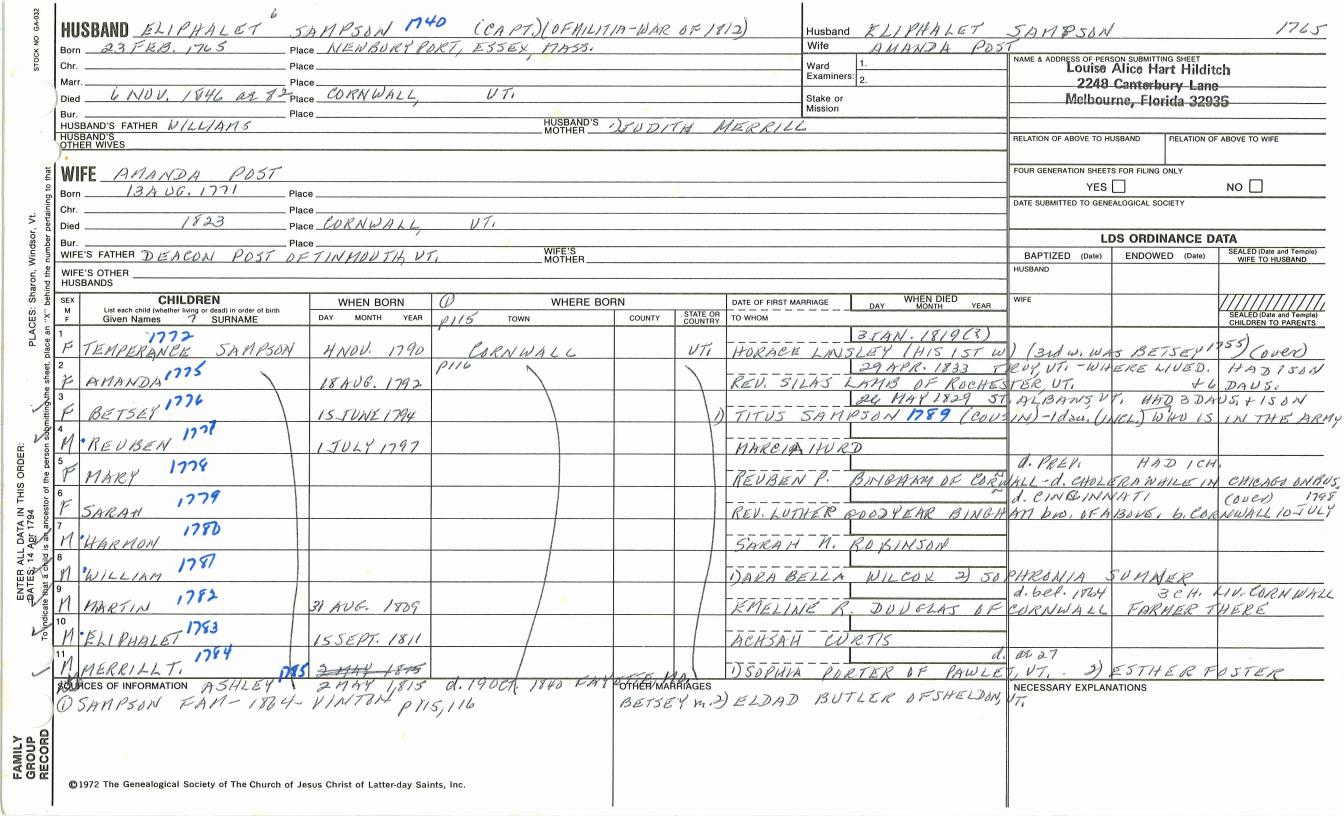 STOCK NO GA-032
HUSBAND ELIPHALET 6 SAMPSON 1740 (CAPT.) (OF MILITIA-WAR OF 1812)
Born 23 FEB. 1765 Place NEWBURYPORT, ESSEX, MASS.
Chr. Place
Marr. Place
Died 6 NOV. 1846 at 82 Place CORNWALL, VT.
Bur. Place
HUSBAND'S FATHER WILLIAMS HUSBAND'S MOTHER 1) JUDITH MERRILL
HUSBAND'S OTHER WIVES
Husband ELIPHALET SAMPSON 1765
Wife AMANDA POST
Ward Examiners: 1. 2.
Stake or Mission
NAME & ADDRESS OF PERSON SUBMITTING SHEET
Louise Alice Hart Hilditch
2248 Canterbury Lane
Melbourne, Florida 32935
RELATION OF ABOVE TO HUSBAND RELATION OF ABOVE TO WIFE
FOUR GENERATION SHEETS FOR FILING ONLY
YES NO
DATE SUBMITTED TO GENEALOGICAL SOCIETY
WIFE AMANDA POST
Born 13 AUG. 1771 Place
Chr. Place
Died 1823 Place CORNWALL, VT.
Bur. Place
WIFE'S FATHER DEACON POST OF TINMOUTH, VT. WIFE'S MOTHER
WIFE'S OTHER HUSBANDS
LDS ORDINANCE DATA
BAPTIZED (Date) ENDOWED (Date) SEALED (Date and Temple) WIFE TO HUSBAND
HUSBAND
WIFE
SEALED (Date and Temple) CHILDREN TO PARENTS
SEX M F CHILDREN WHEN BORN ① WHERE BORN DATE OF FIRST MARRIAGE WHEN DIED
List each child (whether living or dead) in order of birth
Given Names 7 SURNAME DAY MONTH YEAR P115 TOWN COUNTY STATE OR COUNTRY TO WHOM DAY MONTH YEAR
1 1772 3 JAN. 1819(3)
F TEMPERANCE SAMPSON 4 NOV. 1790 CORNWALL VT. HORACE LINSLEY (HIS 1ST W) (3rd w. WAS BETSEY 1755) (over)
2 P116 29 APR. 1833 TROY, VT. - WHERE LIVED. HAD 1 SON
F AMANDA 1775 18 AUG. 1792 REV. SILAS LAMB OF ROCHESTER, VT. + 6 DAUS.
3 26 MAY 1829 ST. ALBANS, VT. HAD 3 DAUS, + 1 SON
F BETSEY 1776 15 JUNE 1794 1) TITUS SAMPSON 1789 (COUSIN) - 1 dau. (INCL.) WHO IS IN THE ARMY
4
M REUBEN 1777 1 JULY 1797 MARCIA HURD
5 d. PREV. HAD 1 CH.
F MARY 1778 REUBEN P. BINGHAM OF CORNWALL - d. CHOLERA WHILE IN CHICAGO ON BUS.
6 d. CINCINNATI (over) 1798
F SARAH 1779 REV. LUTHER GOODYEAR BINGHAM bro. OF ABOVE. b. CORNWALL 10 JULY
7
M HARMON 1780 SARAH N. ROBINSON
8
M WILLIAM 1781 1) DARA BELLA WILCOX 2) SOPHRONIA SUMNER
9 d. bef. 1864 3 CH. LIV. CORNWALL
M MARTIN 1782 31 AUG. 1809 EMELINE R. DOUGLAS OF CORNWALL FARMER THERE
10
M ELIPHALET 1783 15 SEPT. 1811 ACHSAH CURTIS
11 d. at 27
M MERRILL T. 1784 2 MAY 1815 1) SOPHIA PORTER OF PAWLET, VT. 2) ESTHER FOSTER
SOURCES OF INFORMATION ASHLEY 1785 2 MAY 1,815 d. 19 OCT. 1840 FAYETTE, MO.
① SAMPSON FAM - 1864 - VINTON P115, 116
OTHER MARRIAGES
BETSEY m. 2) ELDAD BUTLER OF SHELDON, VT.
NECESSARY EXPLANATIONS
©1972 The Genealogical Society of The Church of Jesus Christ of Latter-day Saints, Inc.
FAMILY GROUP RECORD
ENTER ALL DATA IN THIS ORDER:
DATES: 14 Apr 1794
PLACES: Sharon, Windsor, Vt.
To indicate that a child is an ancestor of the person submitting the sheet, place an "X" behind the number pertaining to that